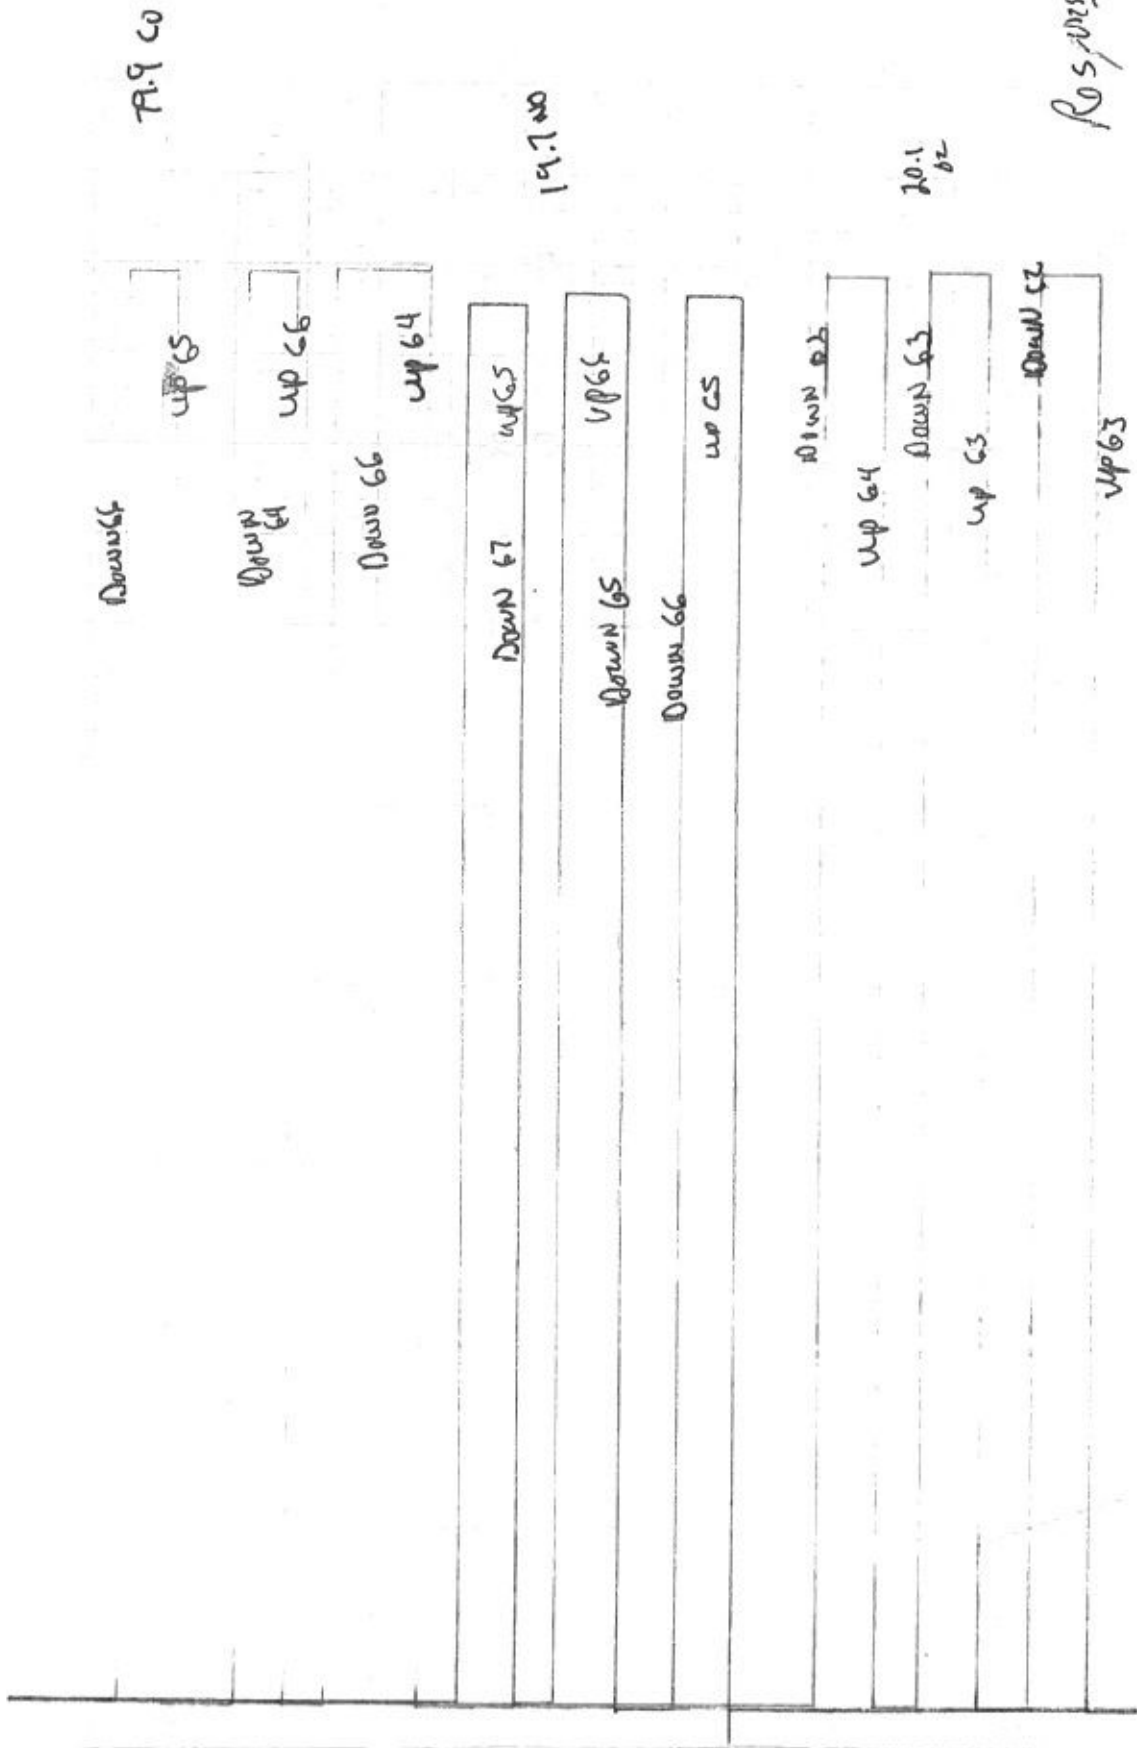 79.9 CO
Down 66
up 65
Down 64
up 66
Down 66
up 64
19.7 NO
Down 67
up 65
Down 65
up 64
Down 66
up 65
20.1
O2
Down 63
up 64
Down 63
up 63
Down 62
up 63